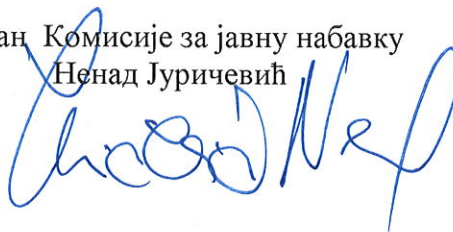 Комисије за јавну набавку
Ненад Јуричевић